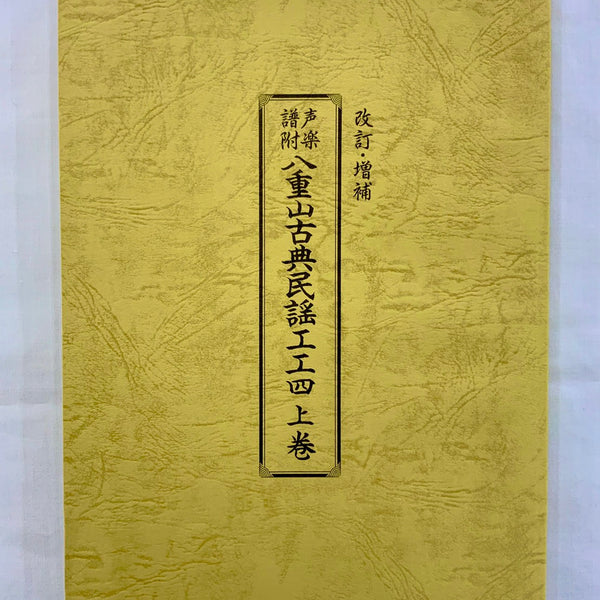 改訂・増補
声楽
譜附
八重山古典民謡工工四 上巻